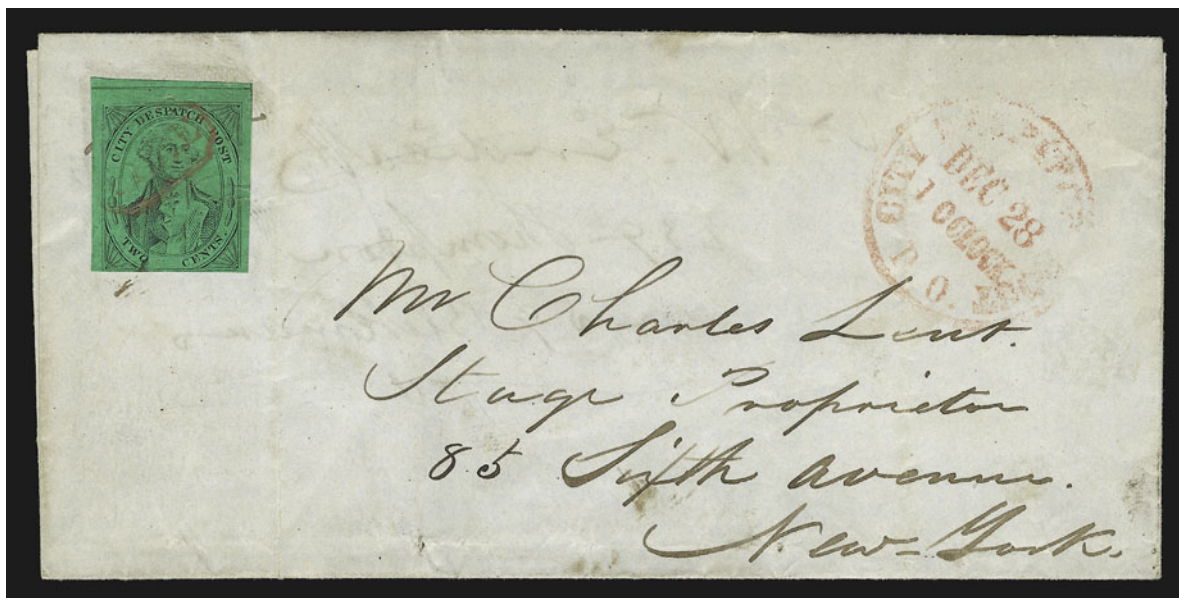 CITY DESPATCH POST
TWO CENTS.
CITY DESPATCH
DEC 28
1 OCLOCK
P. O.
Mr Charles Lent.
Stage Proprietor
85 Fifth Avenue.
New-York.